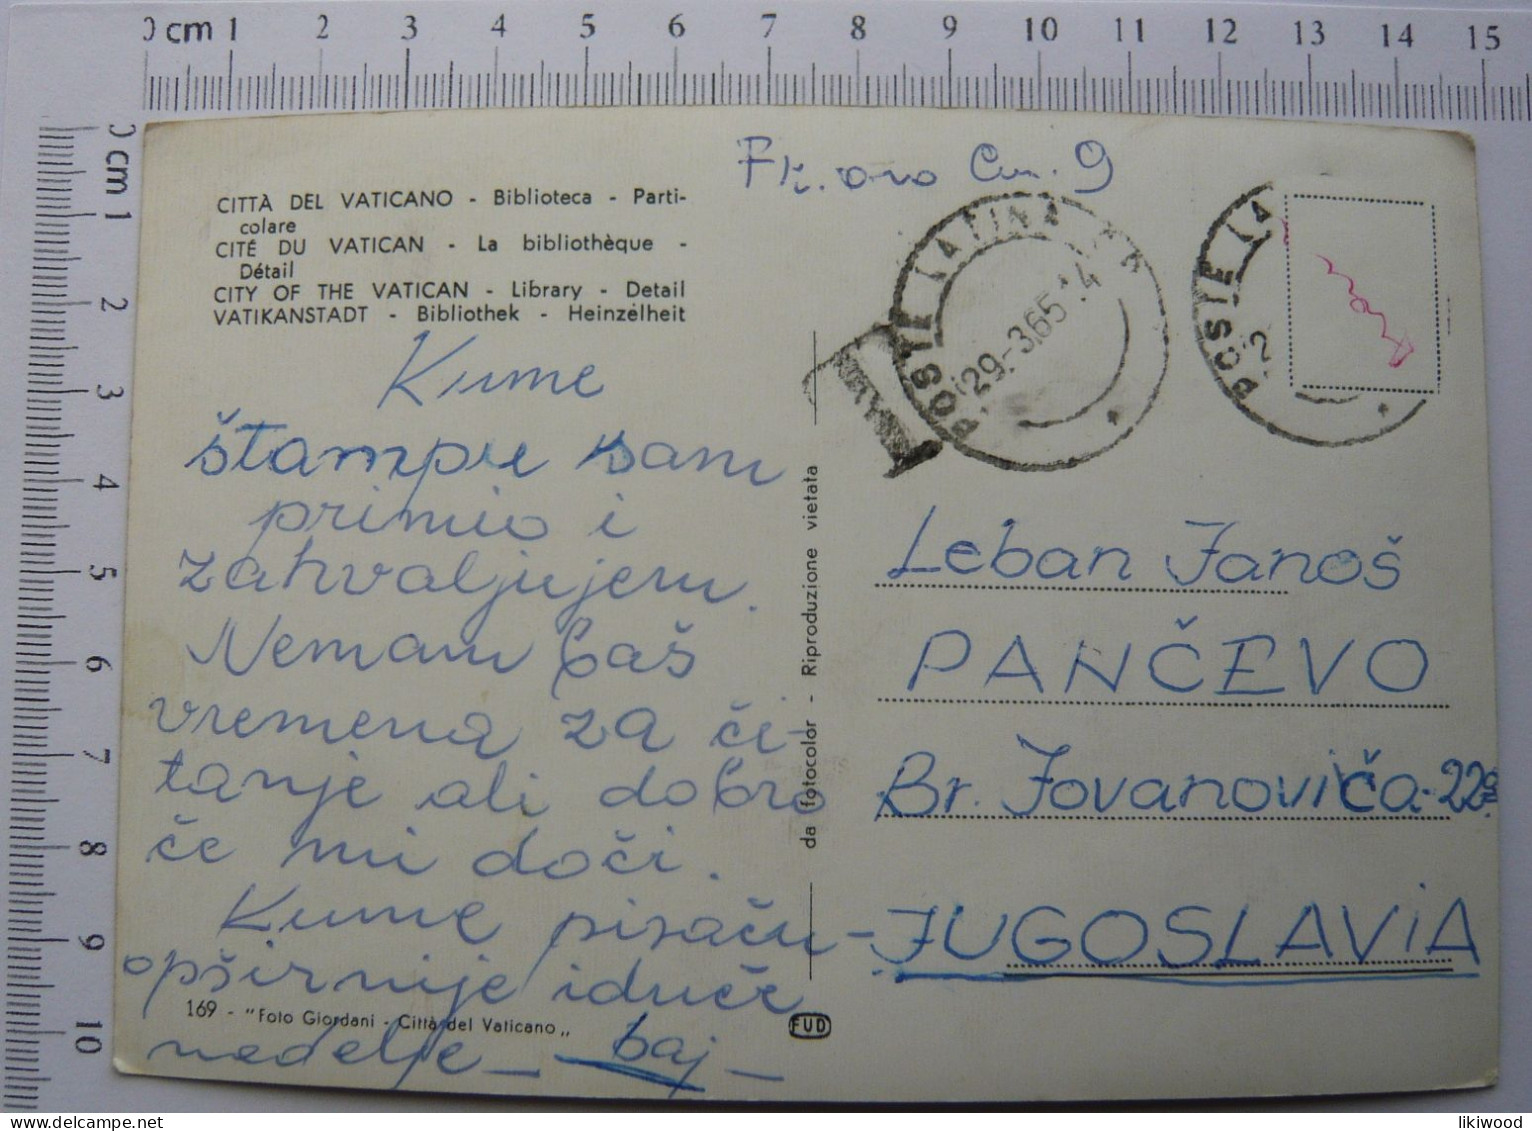 0 cm 1 2 3 4 5 6 7 8 9 10 11 12 13 14 15
0 cm 1 2 3 4 5 6 7 8 9 10
CITTÀ DEL VATICANO - Biblioteca - Parti-
colare
CITÉ DU VATICAN - La bibliothèque -
Détail
CITY OF THE VATICAN - Library - Detail
VATIKANSTADT - Bibliothek - Heinzélheit
Kume
štampu sam
primio i
zahvaljujem.
Nemam baš
vremena za či-
tanje ali dobro
če mi doči.
Kume pisaču
opširnije iduče
nedelje_ baj_
169 - "Foto Giordani - Città del Vaticano„
da fotocolor - Riproduzione vietata
FUD
9
POSTE LATINA
29.-3.65
POSTE LA
2
Leban Janoš
PANČEVO
Br. Jovanoviča-22a
-JUGOSLAVIA
likiwood